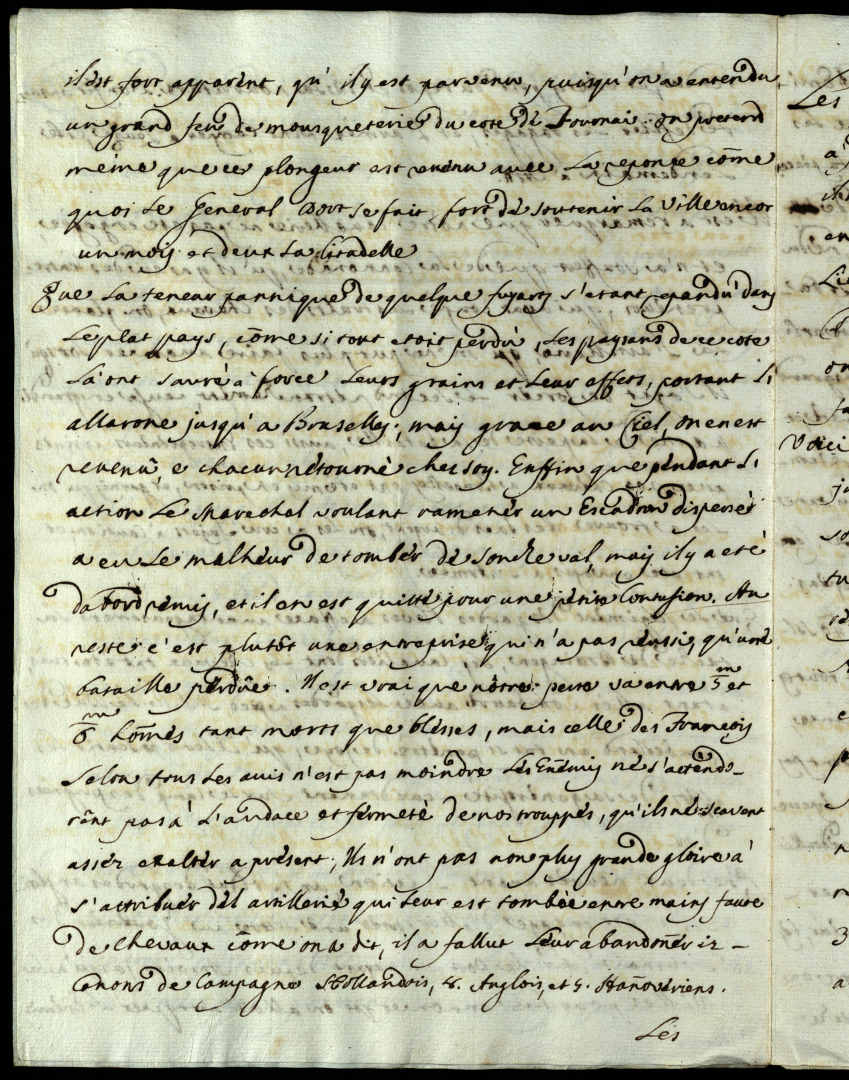 il est fort apparent, qu' il y est parvenu, puisqu'on a entendu
un grand feu de mousqueterie du coté de Tournai. on pretend
même que ce plongeur est revenu avec La reponse cōme
quoi Le General Dort se fait fort de soutenir La Ville encor
un mois et deux La Citadelle
Que La terreur pannique de quelque fuyards s'etant repandu dans
Le plat pays, cōme si tout etoit perdu, Les paysans de ce coté
Là ont sauvé à force Leurs grains et Leur effets, portant L'
allarme jusqu'a Bruxelles; mais grace au Ciel, on en est
revenû, e chacun rétourné chez soy. Enffin que pendant L'
action Le Marechal voulant ramener un Escadron dispersé
a eu Le malheur de tomber de son cheval, mais il y a eté
dabord remis, et il en est quitté pour une pétite Contusion. Au
reste c'est plutôt une entreprise qui n'a pas reussi, qu'une
bataille perdûe. Il est vrai que nôtre perte va entre 5 m et
6 m hōmes tant morts que blésses, mais celle des François
selon tous Les avis n'est pas moindre Lés Eñemis né s'attend-
rānt pas à L'audace et férmeté de nos trouppés, qu'ils né scavent
assez exalter a présent; Ils n'ont pas non plus grande gloire à
s'attribuer dél artillerie qui Leur est tombée entre mains faute
de Chevaux cōme on a dit, il a fallut Léur abandoñer 12 -
Canons de Campagne Hollandois, 8. Anglois, et 7. Hañovériens.
Lés
Les
Voici